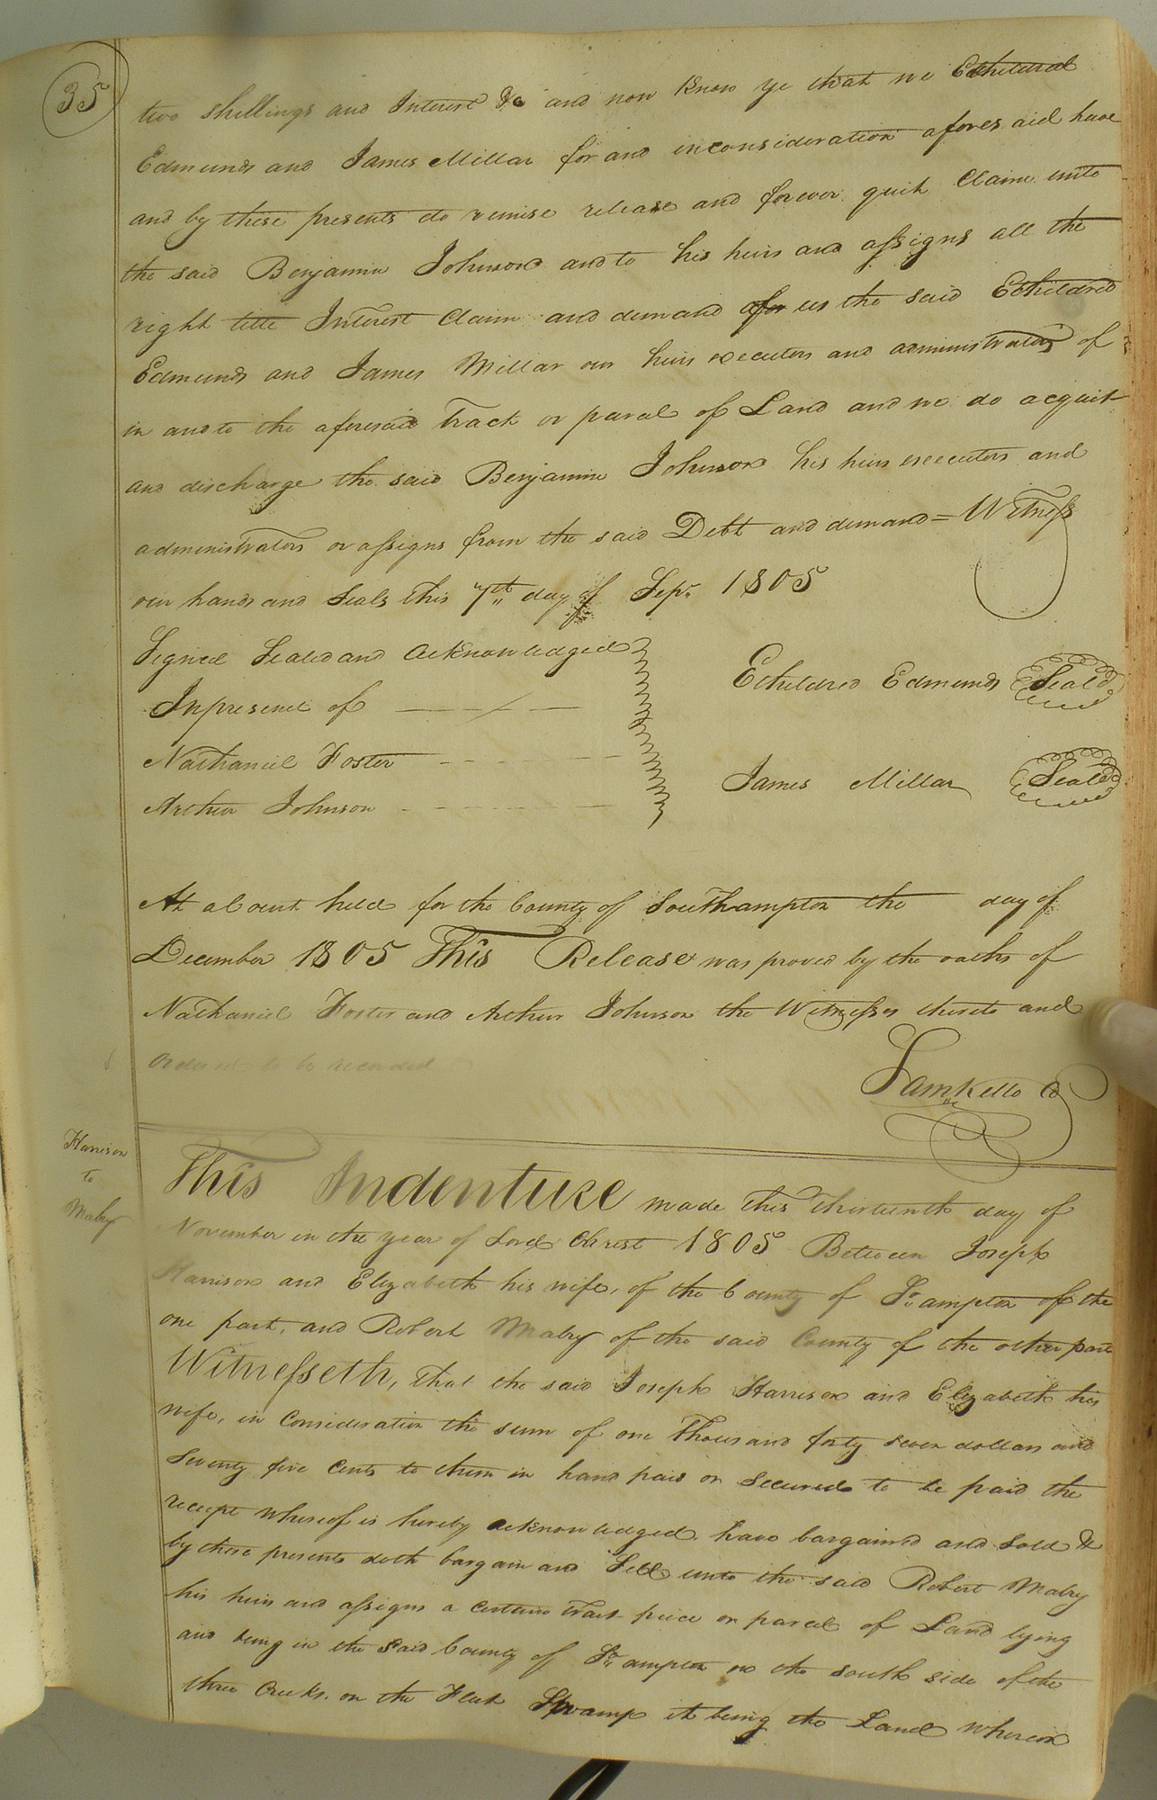 35
two shillings and Interest &c and now Know ye that we Etheldred
Edmunds and James Millar for and inconsideration afores aid have
and by these presents do remise release and forever quit Claim unto
the said Benjamin Johnson and to his heirs and assigns all the
right title Interest Claim and demand of us the said Etheldred
Edmunds and James Millar our heirs executors and administrators of
in and to the aforesaid Tract or parcel of Land and we do acquit
and discharge the said Benjamin Johnson his heirs executors and
administrators or assigns from the said Debt and demand = Witness
our hands and Seals this 7th day of Sepr. 1805
Signed Sealed and acknowledged
Inpresence of
Etheldred Edmunds Seal
Nathaniel Foster
James Millar Seal
Arthur Johnson
At a Court held for the County of Southampton the day of
December 1805 This Release was proved by the oaths of
Nathaniel Foster and Arthur Johnson the Witnesses thereto and
ordered to be recorded
Saml Kello C
Harrison
to
Mabry
This Indenture made this thirteenth day of
November in the year of Lord Christ 1805 Between Joseph
Harrison and Elizabeth his wife, of the County of So.ampton of the
one part, and Robert Mabry of the said County of the other part
Witnesseth, that the said Joseph Harrison and Elizabeth his
wife, in Consideration the sum of one thousand forty seven dollars and
Seventy five Cents to them in hand paid or Secured to be paid the
receipt whereof is hereby acknowledged have bargained and sold &
by these presents doth bargain and Sell unto the said Robert Mabry
his heirs and assigns a certain tract piece or parcel of Land lying
and being in the said County of So.ampton on the south side of the
three Creeks. on the Flat Swamp it being the Land whereon